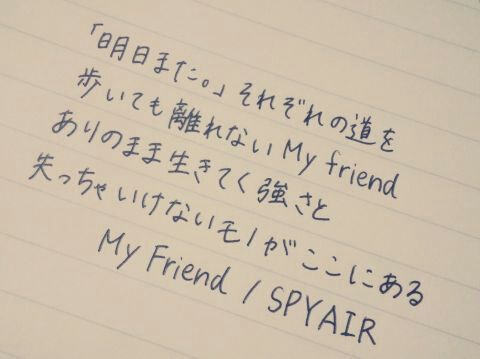 「明日また。」それぞれの道を
歩いても離れない My friend
ありのまま生きてく強さと
失っちゃいけないモノがここにある
My Friend / SPYAIR